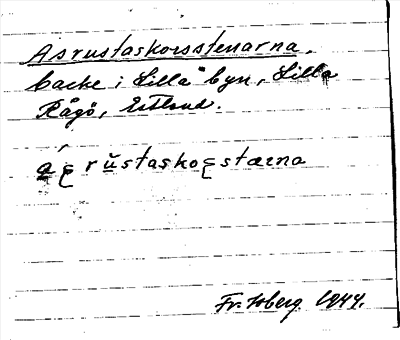 Asrustaskorsstenarna.
backe i Lilla byn, Lilla
Rågö, Estland.
a̲ʂru̲staskoʂstærna
Fr. Isberg 1944.